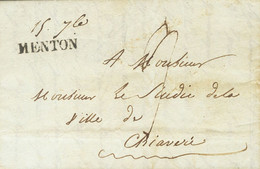 15 7bre
MENTON
A Monsieur
Monsieur le Sindic de la
Ville de
Chiaveri